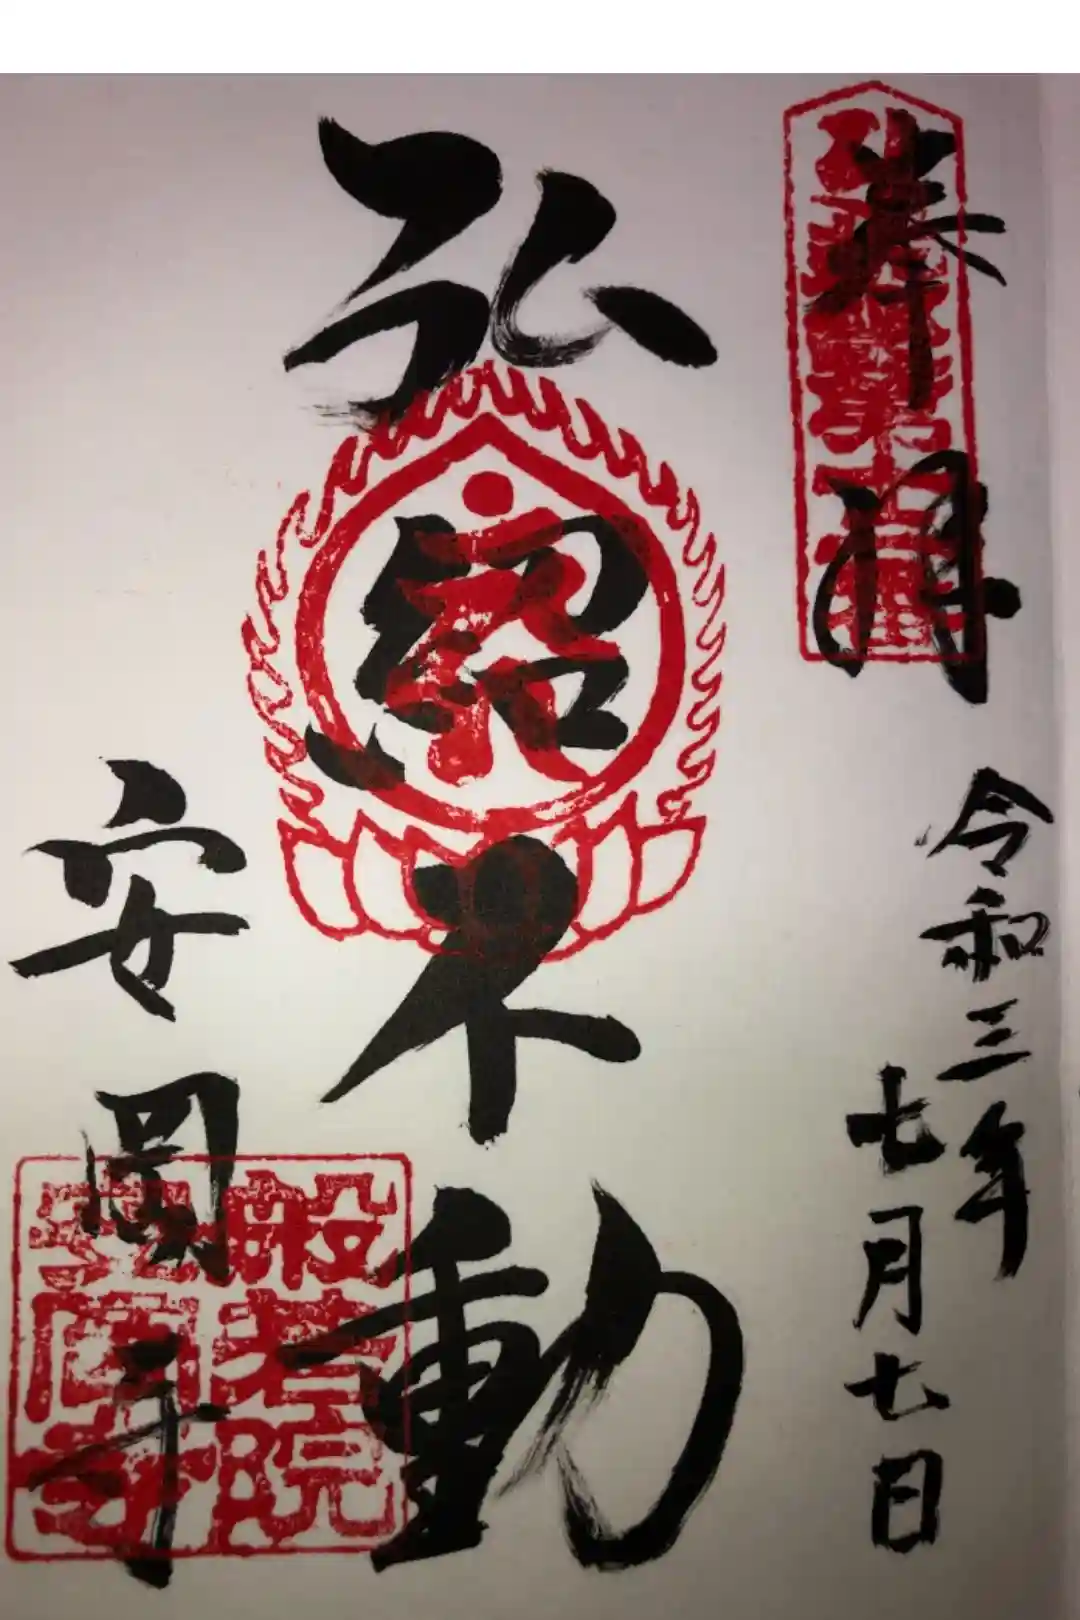 奉拝
令和三年
七月七日
弘紹不動
安岡寺
般若院
安岡寺